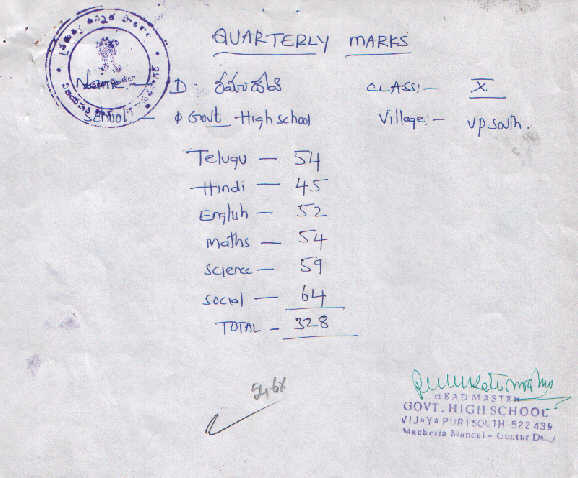 QUARTERLY MARKS
Name — D. రమాదేవి CLASS:- X
School — Govt. High school Village:- V.P.South.
Telugu — 54
Hindi — 45
English — 52
Maths — 54
Science — 59
Social — 64
TOTAL — 328
54.6%
HEAD MASTER
GOVT. HIGH SCHOOL
VIJAYA PURI SOUTH-522 439
Macherla Mandal - Guntur Dt.